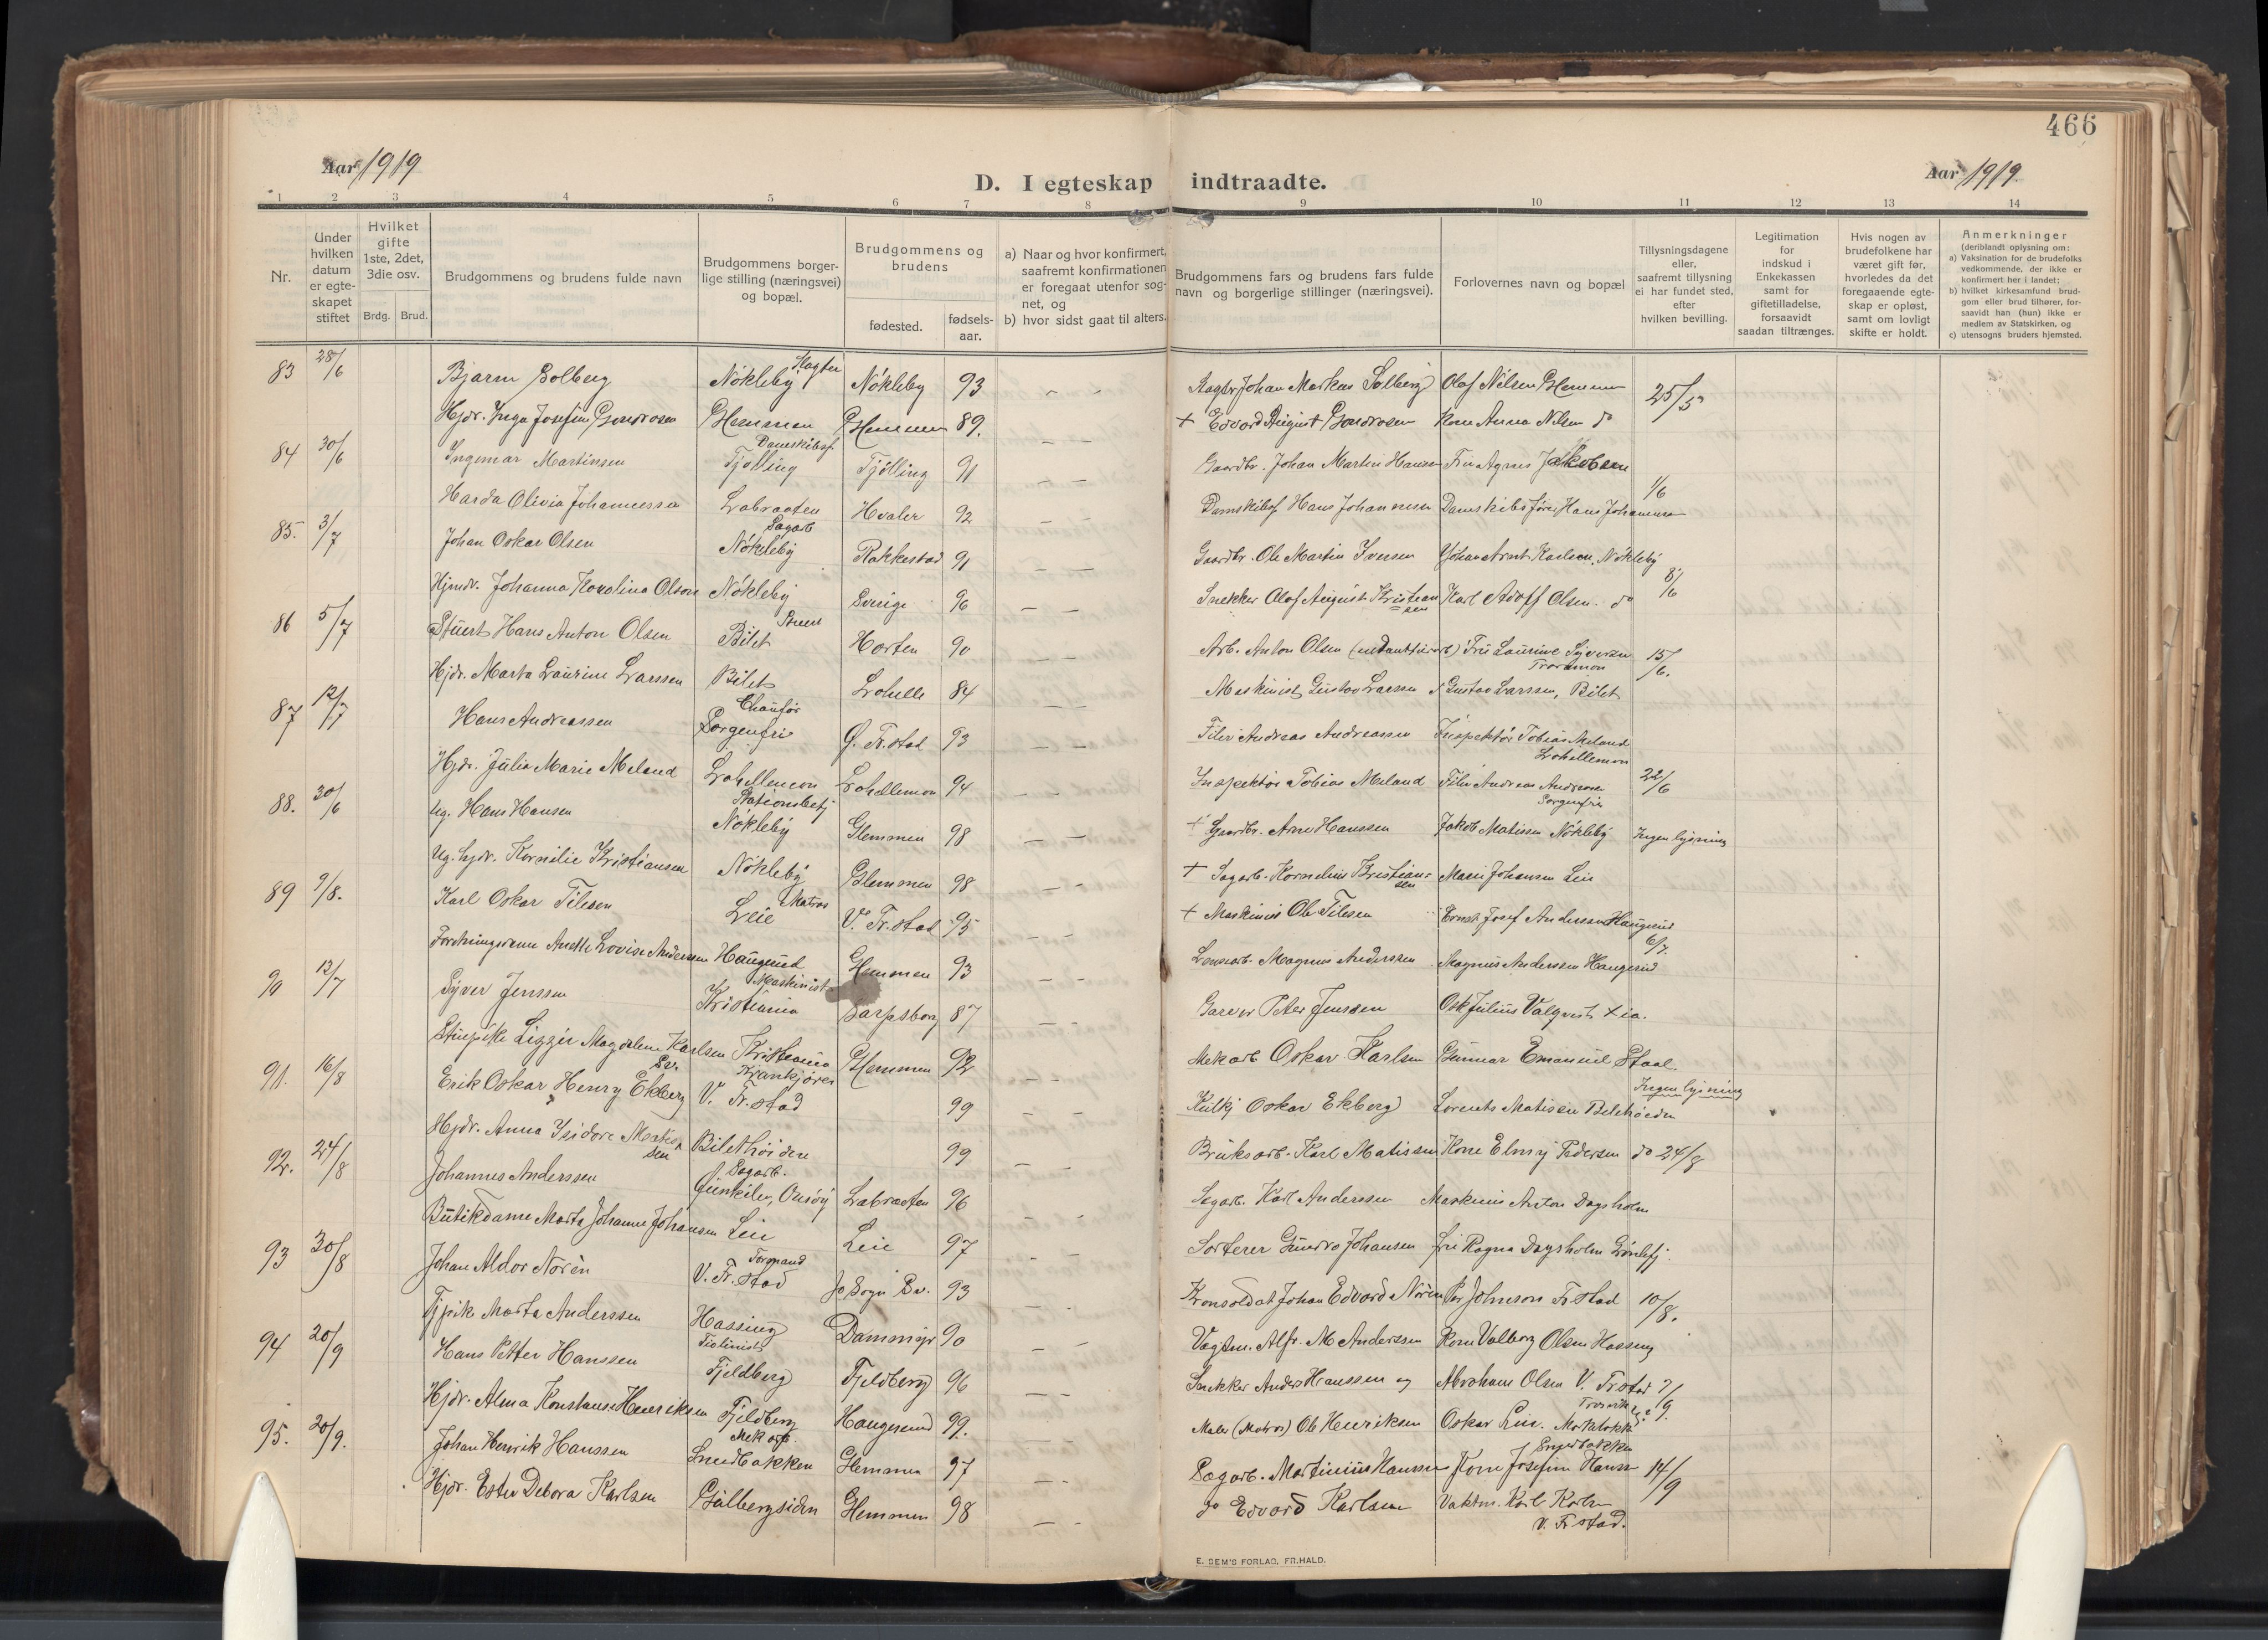 466
Aar 1919
D. I egteskap indtraadte.
Aar 1919.
1 2 3 4 5 6 7 8 9 10 11 12 13 14
Nr.
Under hvilken datum er egte-skapet stiftet
Hvilket gifte 1ste, 2det, 3die osv.
Brdg. Brud.
Brudgommens og brudens fulde navn
Brudgommens borger-lige stilling (næringsvei) og bopæl.
Brudgommens og brudens
fødested.
fødsels-aar.
a) Naar og hvor konfirmert, saafremt konfirmationen er foregaat utenfor sog-net, og
b) hvor sidst gaat til alters.
Brudgommens fars og brudens fars fulde navn og borgerlige stillinger (næringsvei).
Forlovernes navn og bopæl
Tillysningsdagene eller, saafremt tillysning ei har fundet sted, efter hvilken bevilling.
Legitimation for indskud i Enkekassen samt for giftetilladelse, forsaavidt saadan tiltrænges.
Hvis nogen av brudefolkene har været gift før, hvorledes da det foregaaende egte-skap er opløst, samt om lovligt skifte er holdt.
Anmerkninger
(deriblandt oplysning om:
a) Vaksination for de brudefolks vedkommende, der ikke er konfirmert her i landet;
b) hvilket kirkesamfund brud-gom eller brud tilhører, for-saavidt han (hun) ikke er medlem av Statskirken, og
c) utensogns bruders hjemsted.
83 28/6 Bjarne Solberg Nökleby Nökleby 93 Johan Markus Solberg Olaf Nilsen Glemmen 25/5
Hjdr. Inga Josefine Glemmen Glemmen 89. + Edvard August Kone Anna Nilsen do
84 30/6 Ingemar Martinsen Damskibsf. Tjölling Tjölling 91 Gaardbr. Johan Martin Hansen Fru Agnes Jakobsen
Harda Olivia Johannessen Labraaten Hvaler 92 Damskibsf. Hans Johannesen Damskibsfører Hans Johannesen 1/6
85. 3/7 Johan Oskar Olsen Sagarb Nökleby Rakkestad 91 Gaardbr. Ole Martin Iversen Johan Arnt Karlsen, Nökleby
Hjmdr. Johanna Karolina Olson Nökleby Sverige 96 Snekker Olof August Kristiansen Karl Adolf Olsen. do 8/6
86 5/7 Stuert Hans Anton Olsen Bilet Horten 90 Arb. Anton Olsen Fru Laurine Syversen 15/6.
Hjdr. Marta Laurine Larssen Bilet Lahelle 84 Maskinist Gustav Larssen Gustav Larssen, Bilet
87 12/7 Hans Andreassen Chauför Sorgenfri Ø. Fr.stad 93 Filer Andreas Andreassen Inspektör Tobias Meland Lahellemoen
Hjdr. Julia Marie Meland Lahellemoen Lahellemoen 94 Inspektör Tobias Meland Filer Andreas Andreassen Sorgenfri 22/6
88. 30/6 Ug. Hans Hansen Stationsbetj Nökleby Glemmen 98 + Gaardbr. Arne Hanssen Jakob Matissen Nökleby Ingen lysning
Ug. hjdr. Kornilie Kristiansen Nökleby Glemmen 98 + Sagarb. Kornelius Kristiansen Marie Johansen Leie
89 9/8. Karl Oskar Tilesen Matros Leie V. Fr.stad 95 + Maskinist Ole Tilesen Ernst Josef Anderssen Haugerud
Anette Lovise Anderssen Haugerud Glemmen 93 Magnus Anderssen Magnus Anderssen Haugerud 6/7.
90 12/7 Syver Jenssen Maskinist Kristiania Sarpsborg 87 Garver Peter Jenssen Osk Julius Valqvist X ia.
Stuepike Lizzie Magdalene Karlsen Kristiania Glemmen 92 Mekarb Oskar Karlsen Gunnar Emanuel Staal.
91. 16/8 Erik Oskar Henry Ekberg Sv. V. Fr.stad 99 Kulkj Oskar Ekberg Lorents Matisen Ingen lysning
Hjdr. Anna Isidore Matissen Bilethöiden 99 Bruksarb. Karl Matissen Kone Elmy Pedersen do 24/8
92. 24/8 Johannes Anderssen Sagarb. Onsöy Labraaten 96 Sagarb. Karl Anderssen Maskinist Anton Dagsholm
Butikdame Marta Johanne Johansen Leie Leie 97 Sorterer Johansen Fru Ragna Dagsholm
93 30/8 Johan Aldor Norén Formand V. Fr.stad Jo Sogn Sv. 93 Kronsoldat Johan Edvard Norén Per Johnson Fr.stad 10/8.
Tjpik Marta Anderssen Hassing Dammyr 90 Vagtm. Alfr. M Anderssen Kone Valborg Olsen Hassing
94 20/9 Hans Petter Hanssen Fiolinist Fjeldberg Fjeldberg 96 Snekker Anders Hanssen Abraham Olsen V. Frstad 7/9.
Hjdr. Alma Konstanse Henriksen Fjeldberg Haugesund 99. Maler (Matros) Ole Henriksen Oskar Lie.
95. 20/9. Johan Henrik Hanssen Mek arb. Smedbakken Glemmen 97 Sagarb. Martinius Hanssen Kone Josefine Hanssen Smedbakken 14/9
Hjdr. Ester Debora Karlsen Gulbergsiden Glemmen 98 do Edvard Karlsen Vaktm. Karl Karlsen V. Fr.stad.
E. SEM'S FORLAG, FR.HALD.